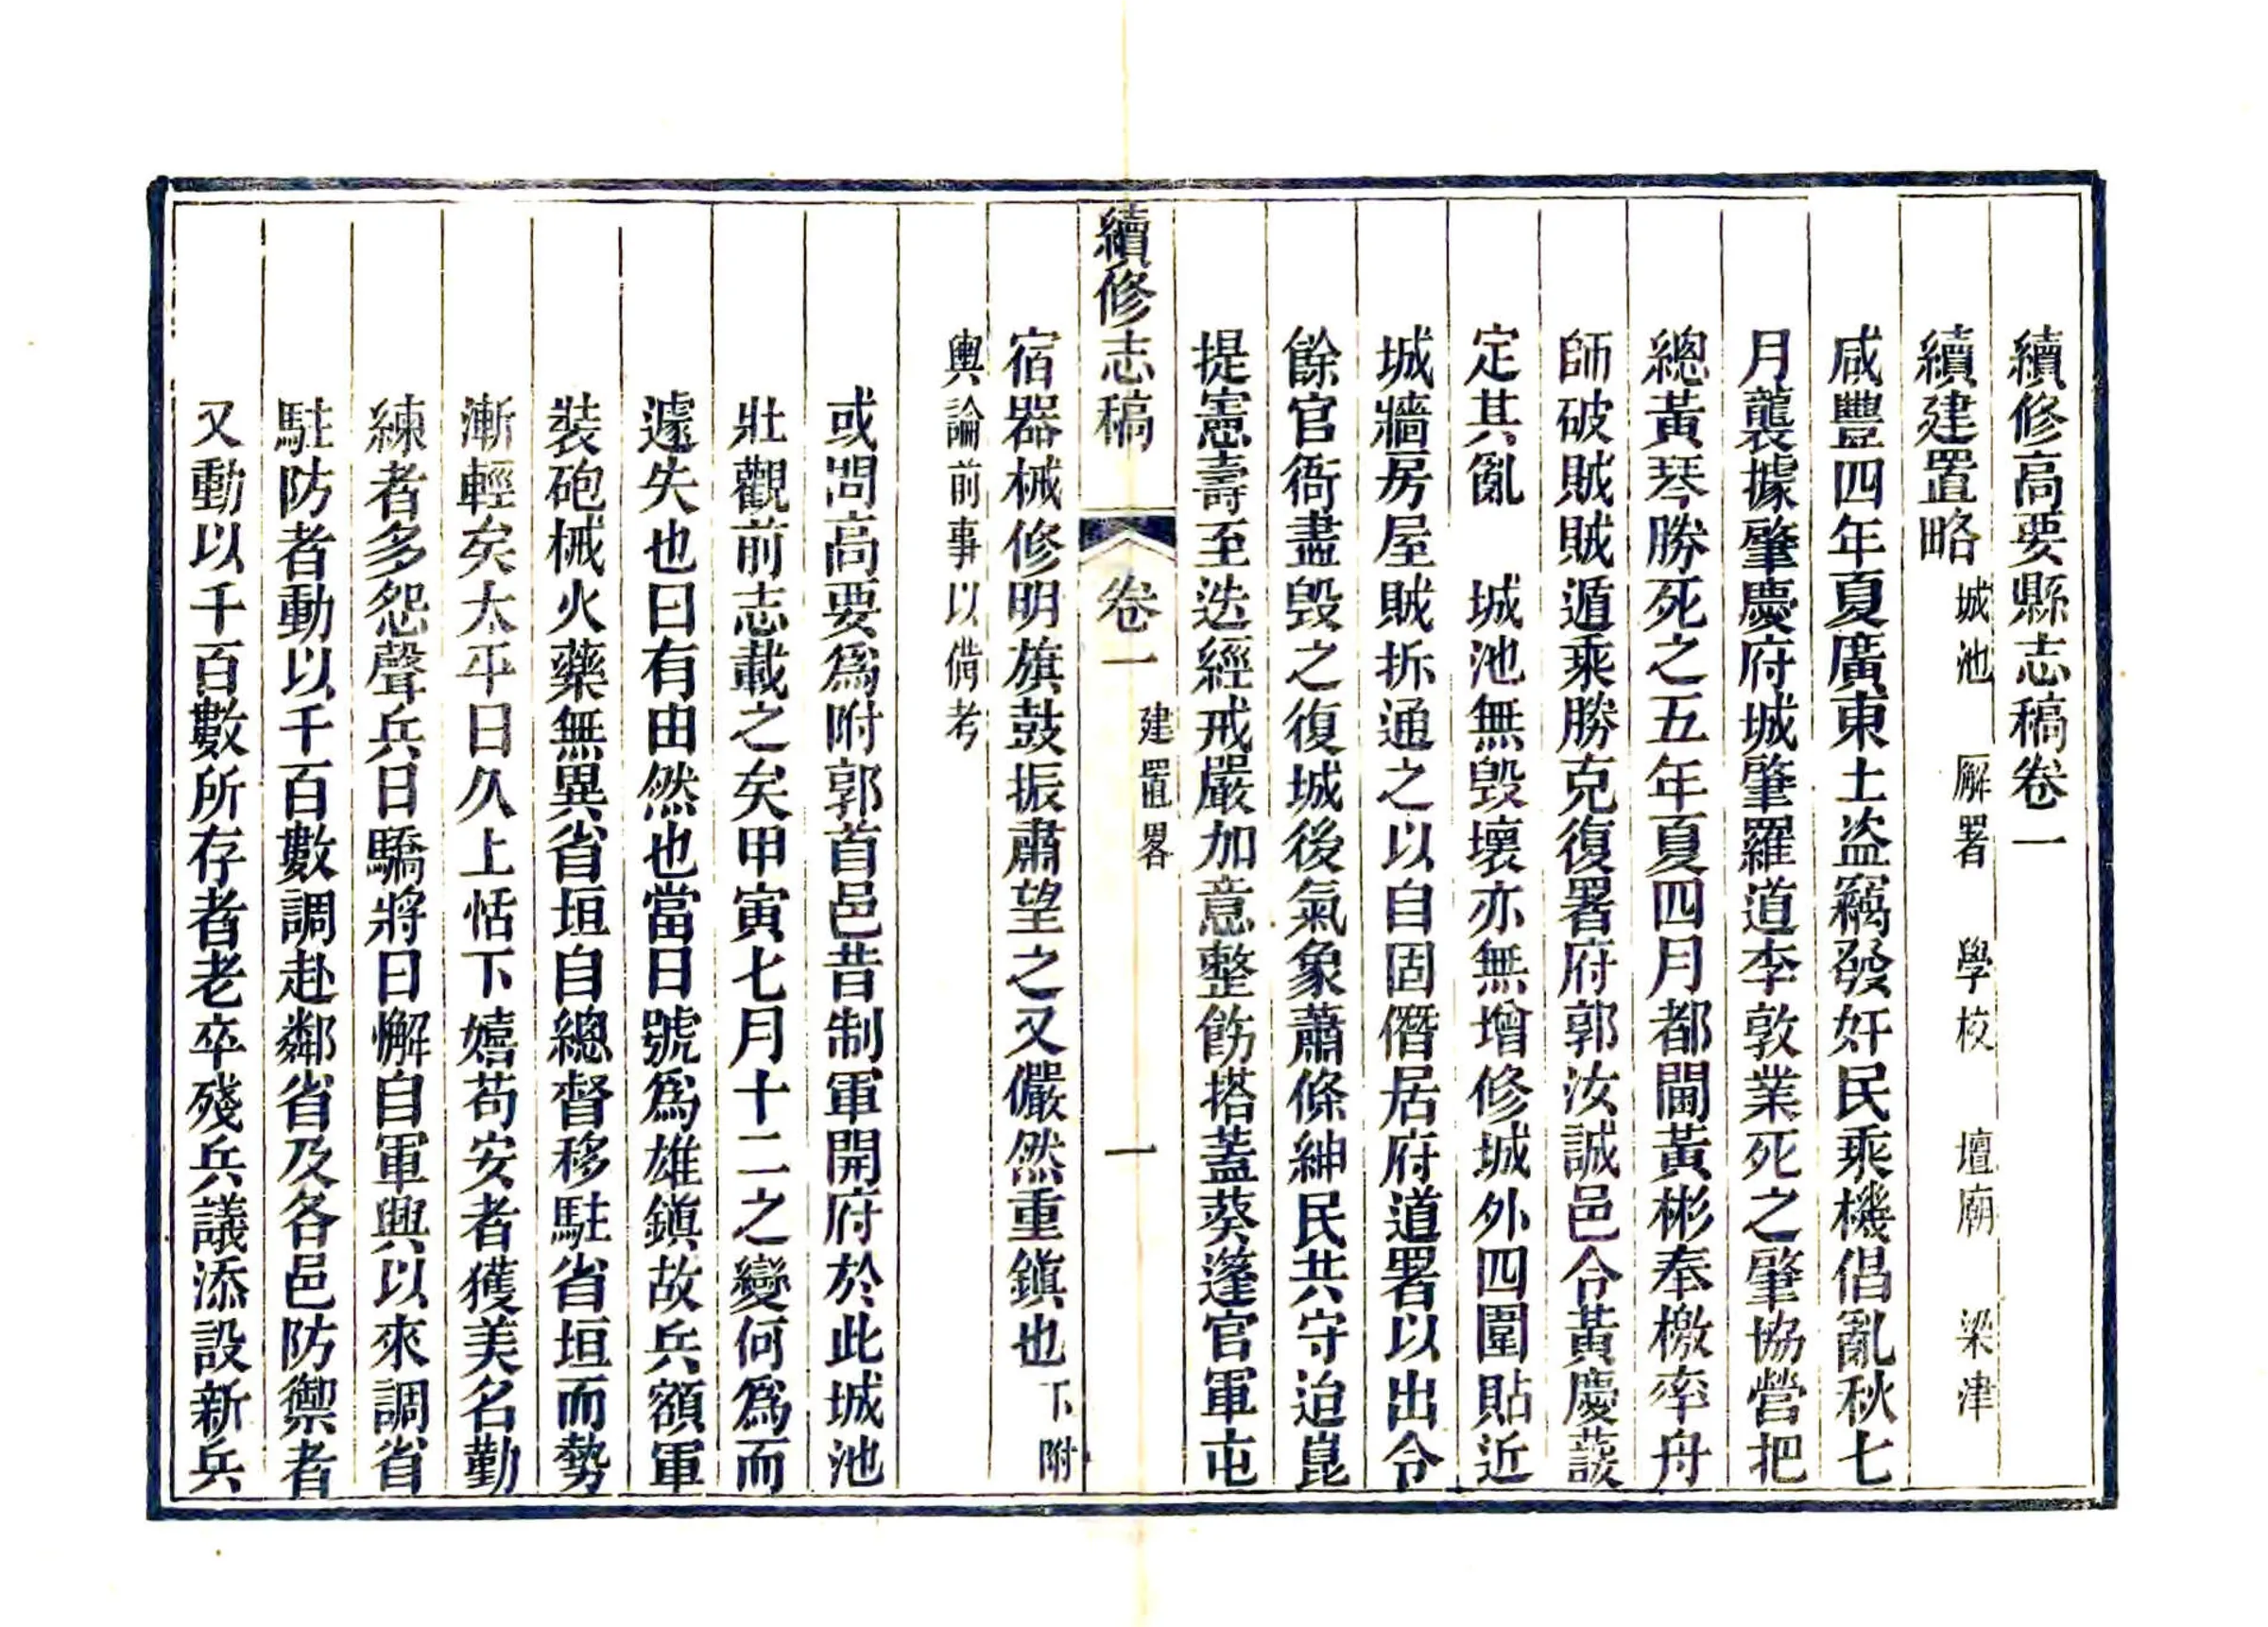 續修高要縣志稿卷一
續建置略 城池 廨署 學校 壇廟 梁津
咸豐四年夏廣東土盜竊發奸民乘機倡亂秋七
月襲據肇慶府城肇羅道李敦業死之肇協營把
總黃琴勝死之五年夏四月都閫黃彬奉檄率舟
師破賊賊遁乘勝克復署府郭汝誠邑令黃慶葰
定其亂 城池無毀壞亦無增修城外四圍貼近
城牆房屋賊拆通之以自固僭居府道署以出令
餘官衙盡毀之復城後氣象蕭條紳民共守迨崑
提憲壽至迭經戒嚴加意整飭搭蓋葵蓬官軍屯
續修志稿 卷一 建置畧 一
宿器械修明旗鼓振肅望之又儼然重鎭也 下附
輿論前事以備考
或問高要爲附郭首邑昔制軍開府於此城池
壯觀前志載之矣甲寅七月十二之變何爲而
遽失也曰有由然也當日號爲雄鎭故兵額軍
裝砲械火藥無異省垣自總督移駐省垣而勢
漸輕矣太平日久上恬下嬉苟安者獲美名勤
練者多怨聲兵日驕將日懈自軍興以來調省
駐防者動以千百數調赴鄰省及各邑防禦者
又動以千百數所存者老卒殘兵議添設新兵